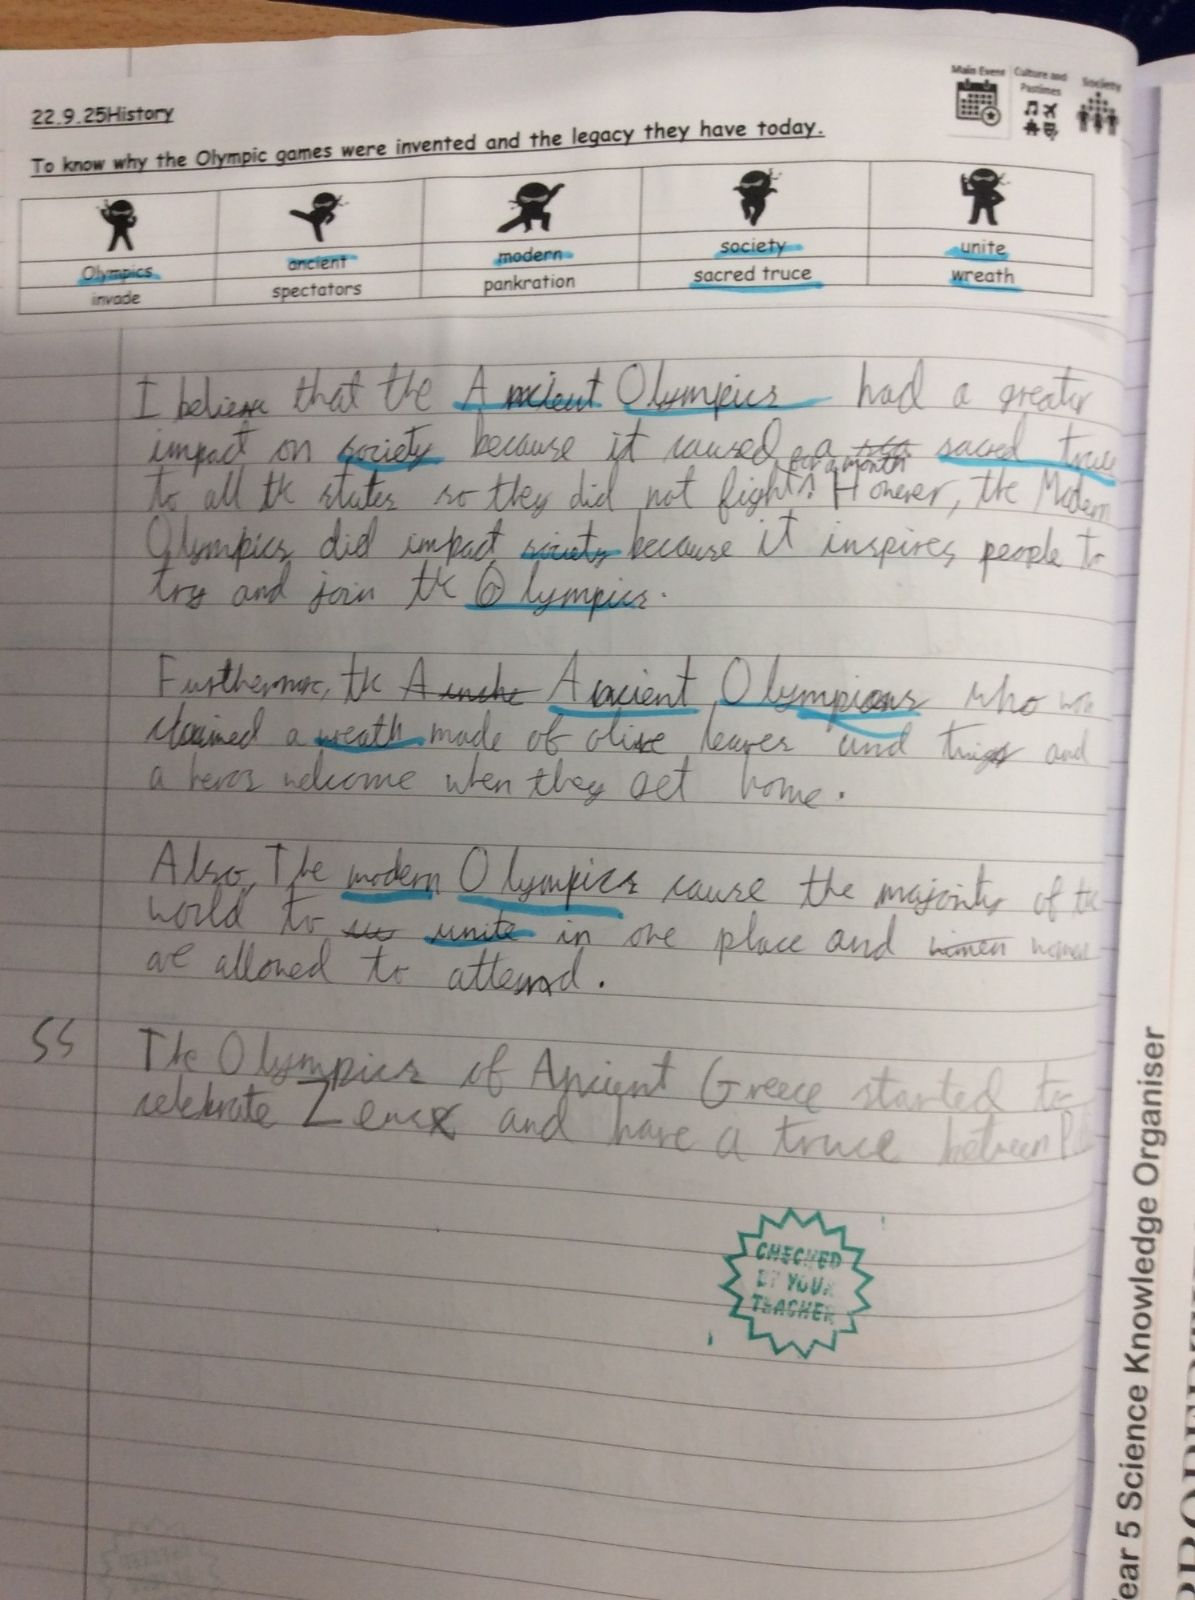 Main Event
Culture and Pastimes
Society
22.9.25History
To know why the Olympic games were invented and the legacy they have today.
Olympics ancient modern society unite
invade spectators pankration sacred truce wreath
I believe that the Ancient Olympics had a greater
impact on society because it caused a sacred truce
for a month
to all the states so they did not fight. However, the Modern
Olympics did impact society because it inspires people to
try and join the Olympics.
Furthermore, the Ancient Olympians who won
claimed a wreath made of olive leaves and twigs and
a heros welcome when they get home.
Also, The modern Olympics cause the majority of the
world to unite in one place and women
are allowed to attend.
SS The Olympics of Ancient Greece started to
celebrate Zeus and have a truce between
CHECKED
BY YOUR
TEACHER
ear 5 Science Knowledge Organiser